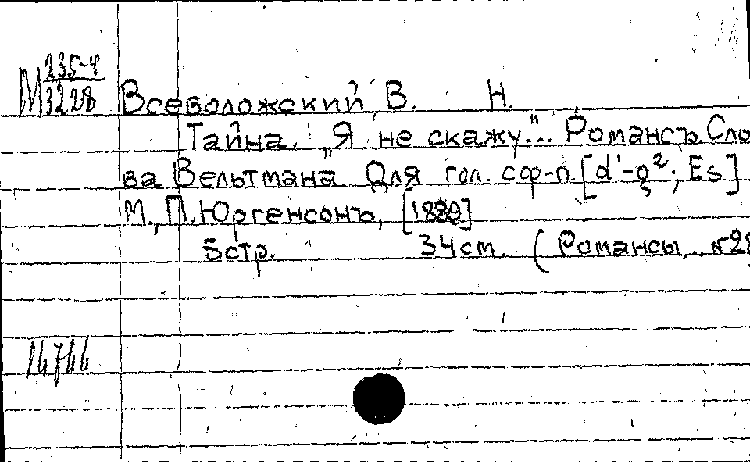 М 235-4
3228
Всеволожский, В. Н.
Тайна. „Я не скажу"... Романсъ. Сло
ва Вельтмана. Для гол. с ф-п. [d¹-g²; Es]
М., П. Юргенсонъ, [1880]
5 стр. 34 см. (Романсы, №28
14766